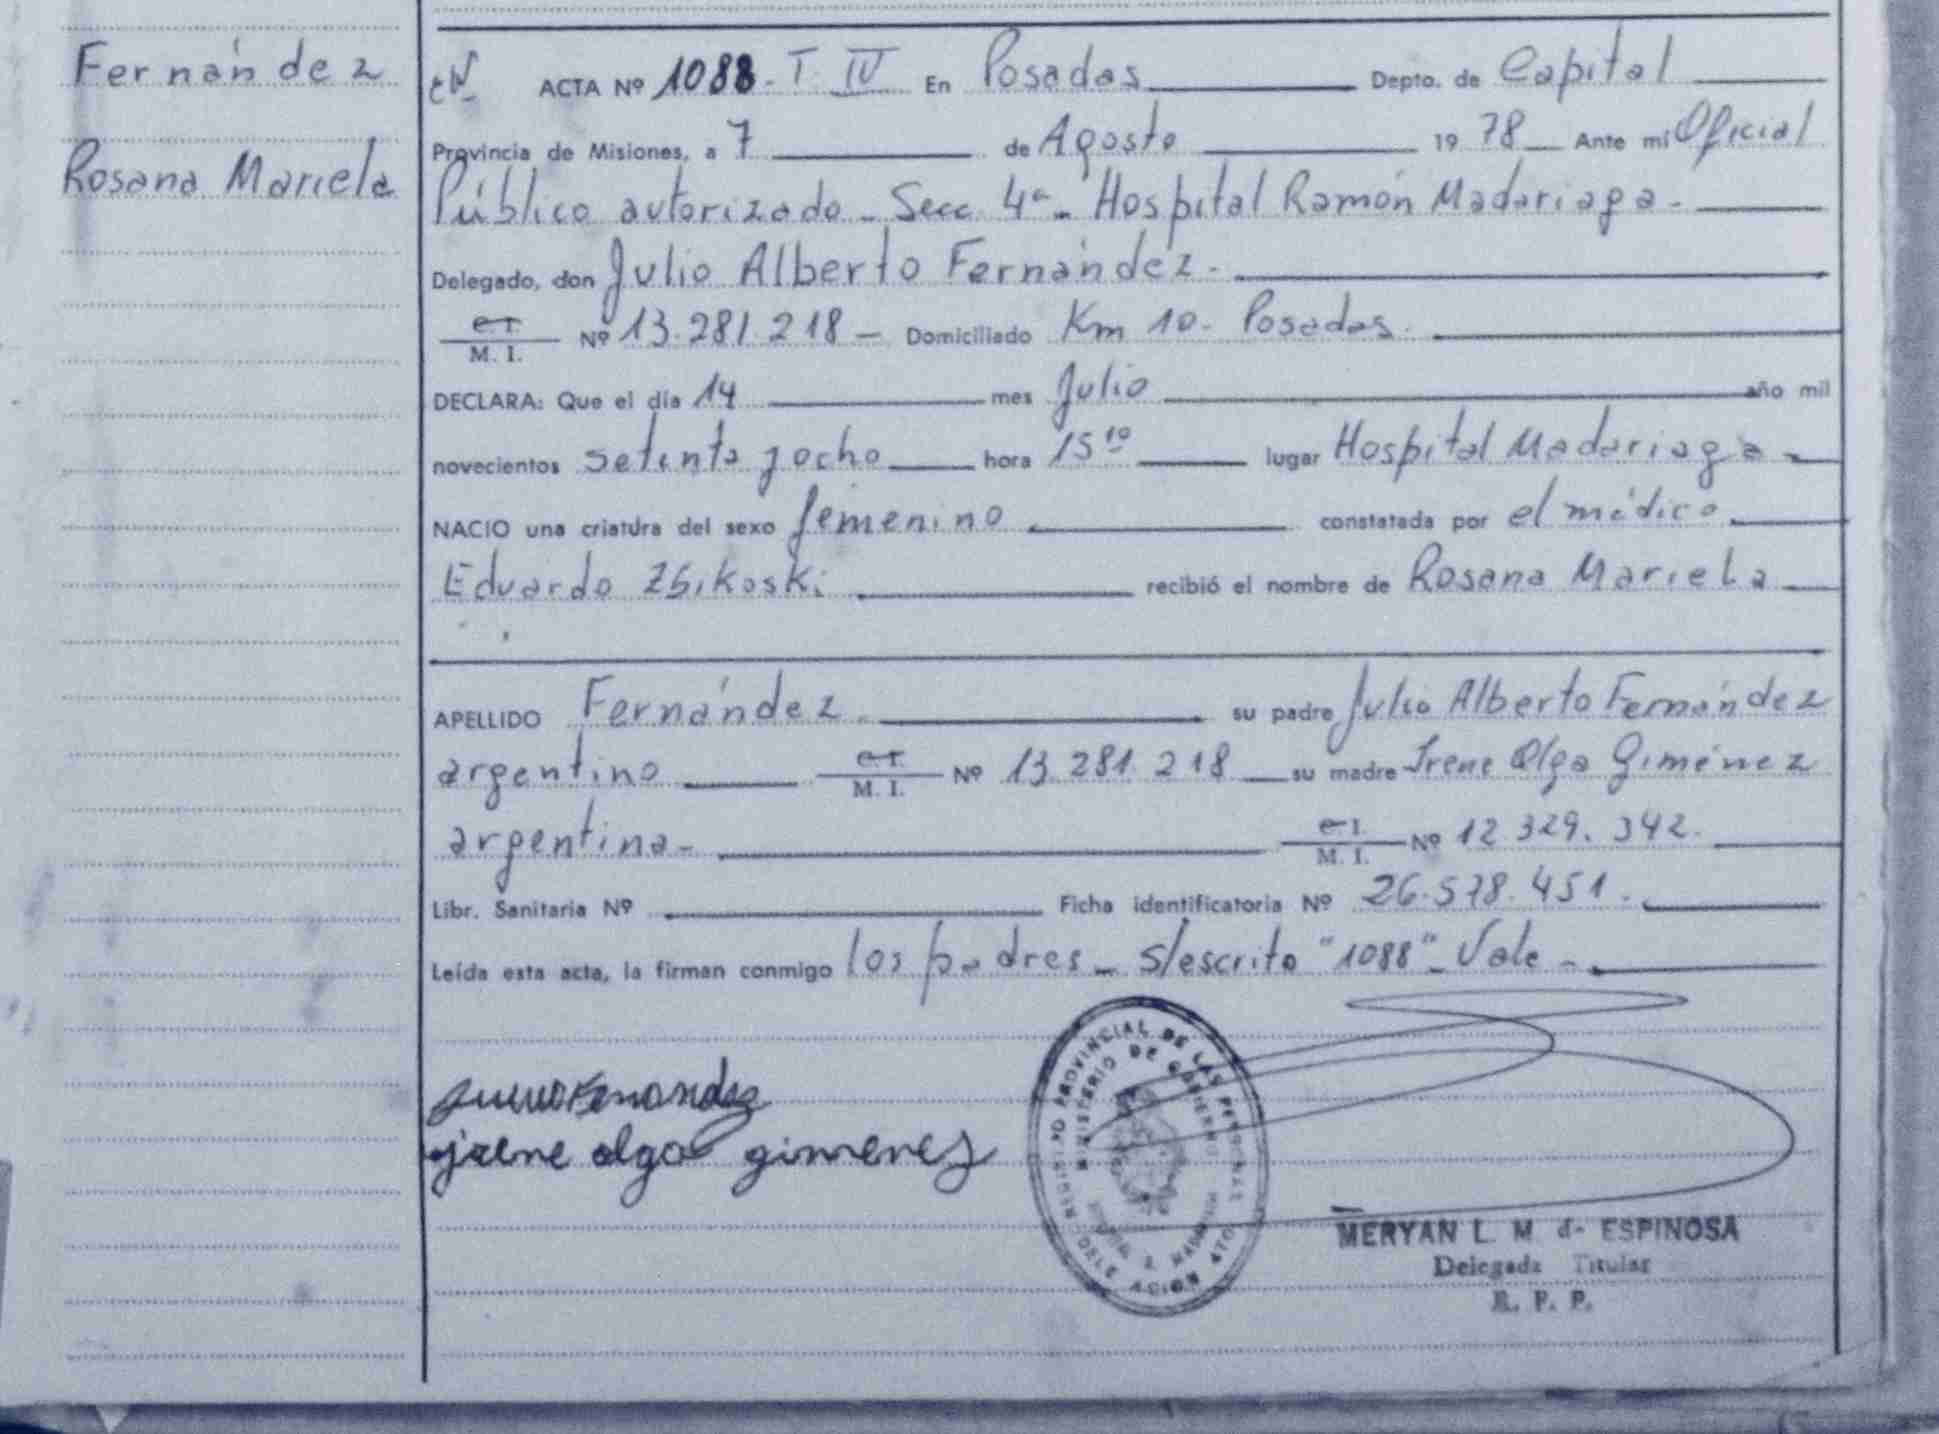 Fernández
Rosana Mariela
ACTA Nº 1088 - T IV En Posadas Depto. de Capital
Provincia de Misiones, a 7 de Agosto 1978 Ante mi Oficial
Público autorizado - Secc 4ª - Hospital Ramón Madariaga -
Delegado, don Julio Alberto Fernández -
C.I. M. I. Nº 13.281.218 - Domiciliado Km 10 - Posadas.
DECLARA: Que el día 14 mes Julio año mil
novecientos setenta y ocho hora 15¹⁰ lugar Hospital Madariaga -
NACIO una criatura del sexo femenino constatada por el médico
Eduardo recibió el nombre de Rosana Mariela
APELLIDO Fernández su padre Julio Alberto Fernández
argentino C.I. M. I. Nº 13.281.218 su madre Irene Olga Giménez
argentina - C.I. M. I. Nº 12.329.342.
Libr. Sanitaria Nº Ficha identificatoria Nº 26.578.451.
Leída esta acta, la firman conmigo los padres - s/escrito "1088" - Vale -
Fernandez
irene olga gimenez
REGISTRO PROVINCIAL DE LAS PERSONAS
MINISTERIO DE GOBIERNO
DELEGACION
MERYAN L. M. de ESPINOSA
Delegada Titular
R. P. P.